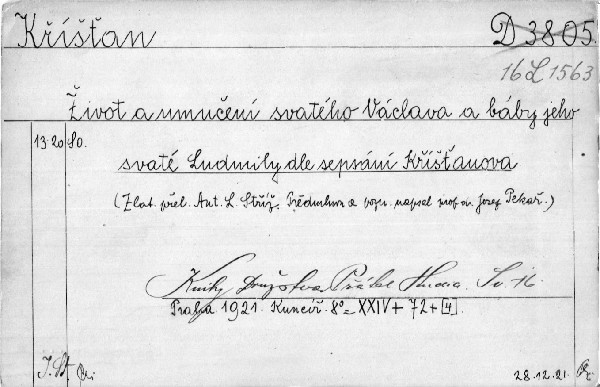 Kříšťan D 3805.
16 L 1563
Život a umučení svatého Václava a báby jeho
13·20 80. svaté Ludmily dle sepsání Kříšťanova
(Z lat. přel. Ant. L. Stříž. Předmluvu a pozn. napsal prof. dr. Josef Pekař.)
Knihy Družstva Přátel Studia. Sv. 16.
Praha 1921. Kuncíř. 8º = XXIV + 72 + [4].
28.12.21.